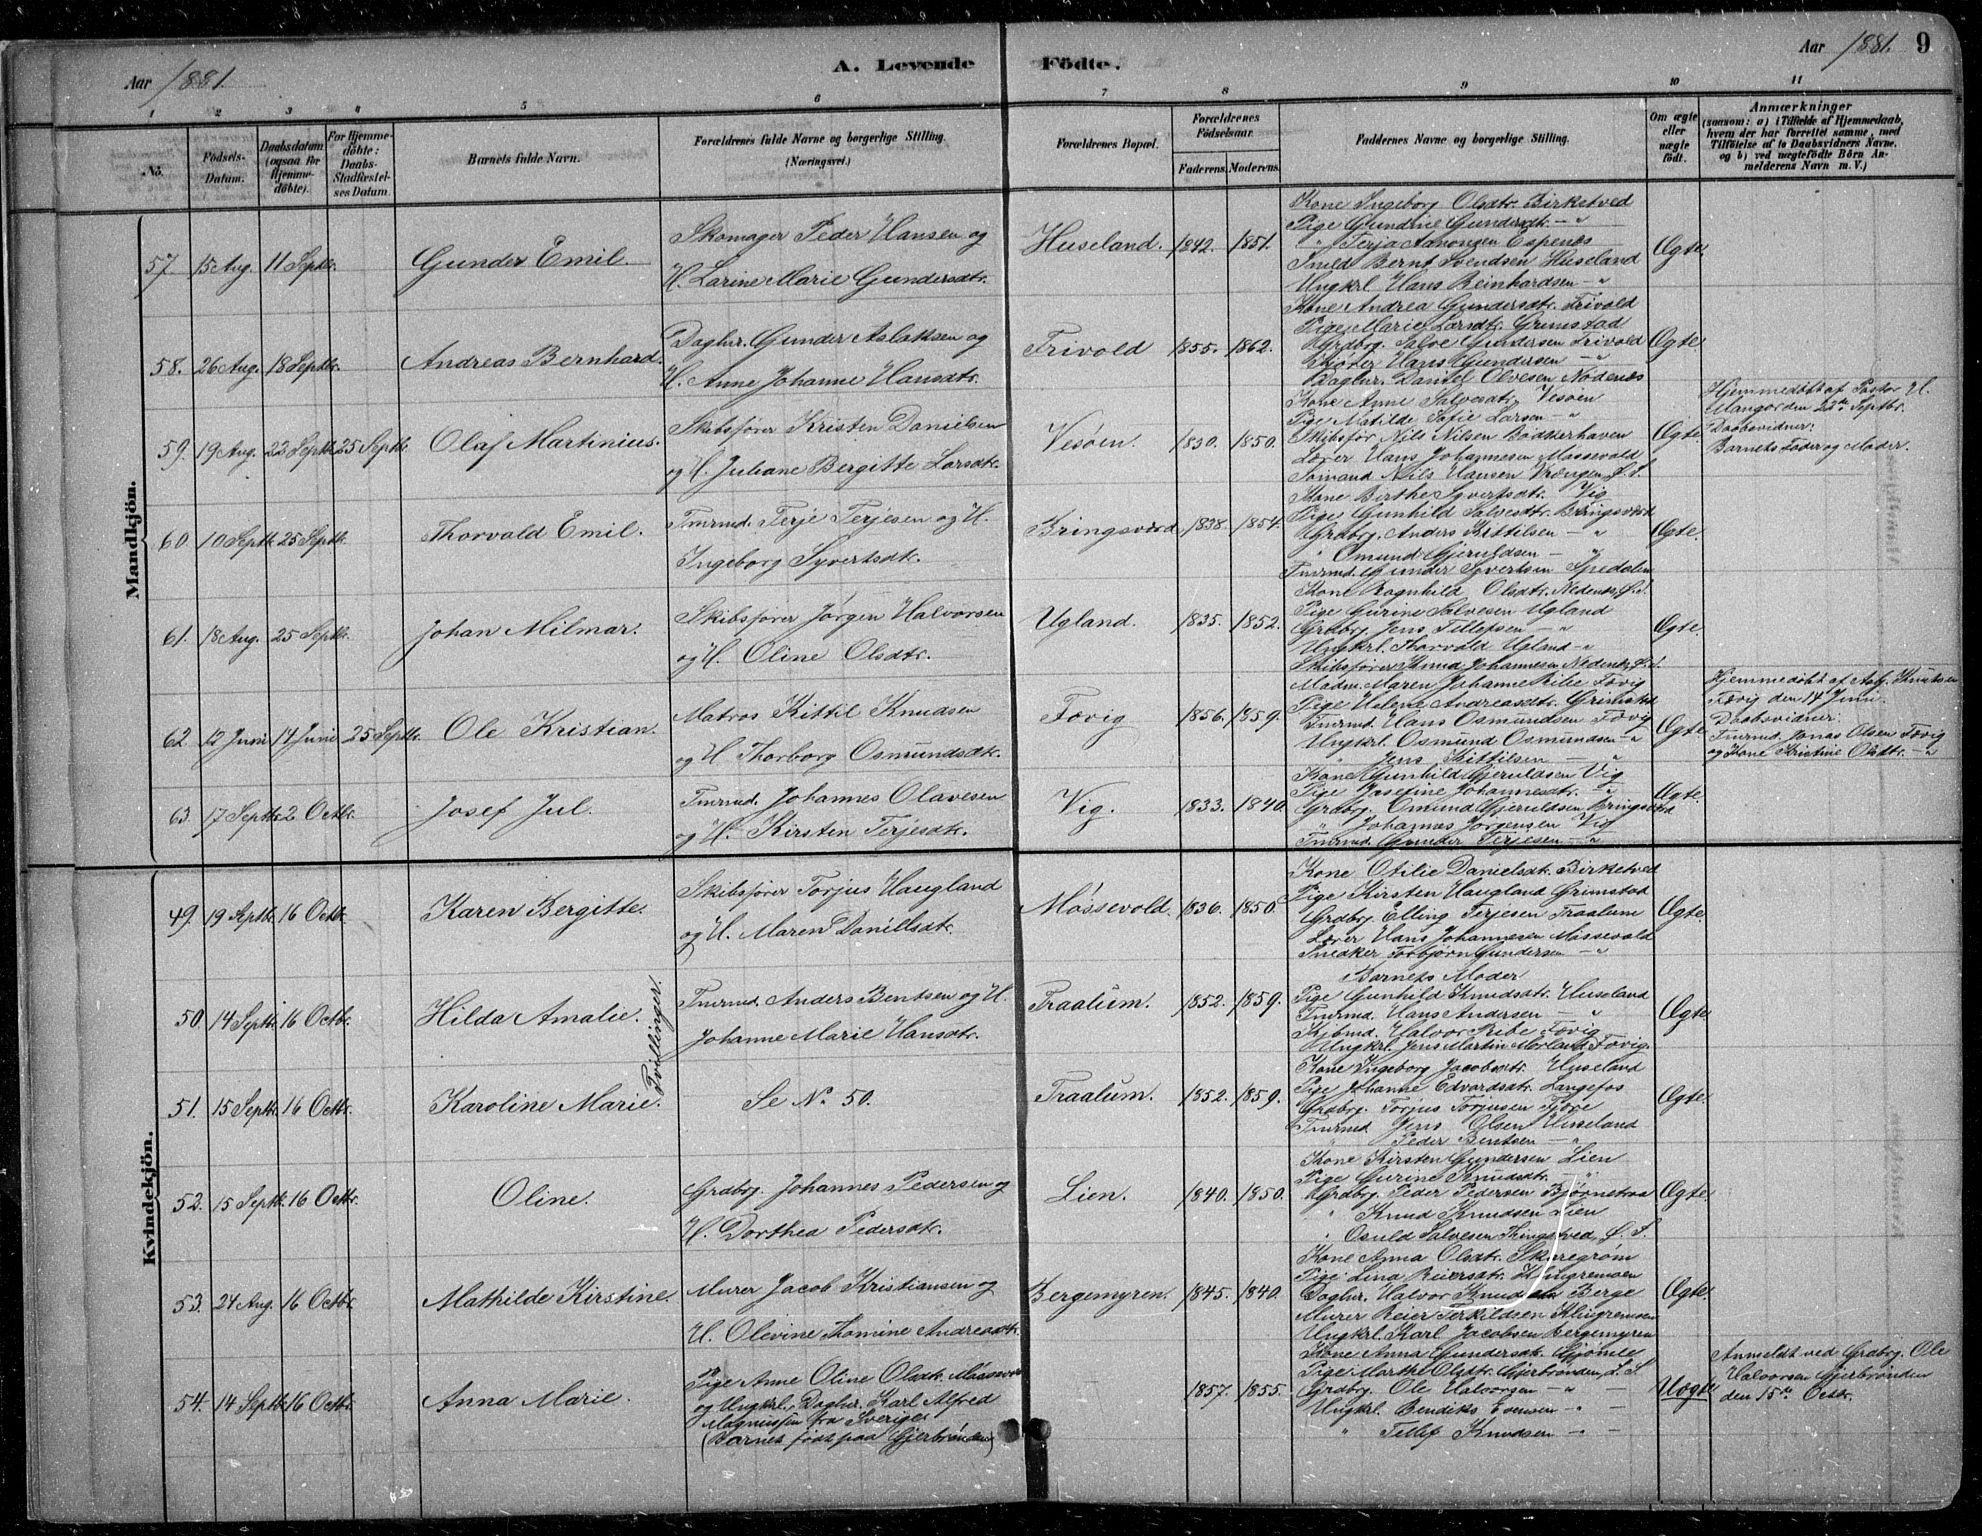 Aar 1881.
A. Levende Födte.
Aar 1881. 9
1 2 3 4 5 6 7 8 9 10 11
No.
Födsels-Datum.
Daabsdatum (ogsaa for Hjemme-döbte).
For Hjemme-döbte: Daabs-Stadfæstel-ses Datum.
Barnets fulde Navn.
Forældrenes fulde Navne og borgerlige Stilling. (Næringsvei.)
Forældrenes Bopæl.
Forældrenes Födselsaar.
Faderens. Moderens.
Faddernes Navne og borgerlige Stilling.
Om ægte eller uægte födt.
Anmærkninger
(saasom: a) i Tilfælde af Hjemmedaab, hvem der har forrettet samme, med Tilföielse af to Daabsvidners Navne, og b) ved uægtefödte Börn An-melderens Navn m. V.)
Mandkjön.
57. 15 Aug. 11 Septbr. Gunder Emil.
Skomager Peder Hansen og
H. Larine Marie Gundersdtr.
Huseland. 1842. 1851.
Kone Ingeborg Olsdtr. Birketved
Pige Gundine Gundersdtr. — "
" Terja Aanonsen Espenæs
Smed Bernt Svendsen Huseland
Ungkrl. Hans Reinhardsen — "
Ægte.
58. 26 Aug. 18 Septbr. Andreas Bernhard.
Dagbr. Gunder Aslaksen og
H. Anne Johanne Hansdtr.
Frivold 1855. 1862.
Kone Andrea Gundersdtr. Frivold
Pige Marie Larsdtr. Grimstad
Grdbrg. Salve Gundersen Frivold
Hans Gundersen — "
Dagbr. Daniel Olvesen Nödenæs
Ægte.
59. 19 Aug. 23 Septbr. 25 Septbr. Olaf Martinius.
Skibsfører Kristen Danielsen
og H. Juliane Bergitte Larsdtr.
Vesøen. 1830. 1850.
Kone Anne Salvesdtr. Vesøen
Pige Matilde Sofie Larsen — "
Skibsfør Nils Nilsen Bodkerhaven
Lærer Hans Johannesen Møssevold
Sømand Nils Hansen Vrængen, Ø. S.
Ægte.
Hjemmedøbt af Pastor H.
den 23de Septbr.
Daabsvidner:
Barnets Fader og Moder.
60. 10 Septbr. 25 Septbr. Thorvald Emil.
Tmrmd. Terje Terjesen og H.
Ingeborg Syvertsdtr.
Bringsværd 1838. 1854.
Kone Birthe Syvertsdtr. Vig
Pige Gunhild Salvesdtr. Bringsværd
Grdbrg. Anders Kittilsen — "
" Omund Gjeruldsen — "
Tmrmd. Gunder Syvertsen Spedalen
Ægte.
61. 18 Aug. 25 Septbr. Johan Milmar.
Skibsfører Jørgen Halvorsen
og H. Oline Olsdtr.
Ugland. 1835. 1852.
Kone Ragnhild Olsdtr. Nedenæs, Ø. S.
Pige Gurine Salvesen Ugland
Grdbrg. Jens Tellefsen — "
Ungkrl. Thorvald Ugland — "
Skibsfører Knud Johannesen Nedenæs, Ø. S.
Ægte.
62. 12 Juni 14 Juni 25 Septbr. Ole Kristian.
Matros Kittil Knudsen
og H. Thorborg Osmundsdtr.
Fævig 1856. 1859.
Madm. Maren Johanne Ribe Fævig
Pige Helene Andreasdtr. Grimstad
Tmrmd. Hans Osmundsen Fævig
Ungkrl. Osmund Osmundsen — "
" Jens Kittilsen — "
Ægte.
Hjemmedøbt af Knutsen
Fævig den 14 Juni.
Daabsvidner:
Tmrmd. Jonas Olsen Fævig
og Kone Kristine Olsdtr. — "
63. 17 Septbr. 2 Octbr. Josef Jul.
Tmrmd. Johannes Olavesen
og H. Kirsten Terjesdtr.
Vig. 1833. 1840.
Kone Gunhild Gjeruldsen Vig
Pige Josefine Johannesdtr. — "
Grdbrg. Omund Gjeruldsen Bringsværd
" Johannes Jørgensen Vig
Tmrmd. Gunder Terjesen — "
Ægte.
Kvindekjön.
49. 19 Septbr. 16 Octbr. Karen Bergitte.
Skibsfører Torjus Haugland
og H. Maren Daniilsdtr.
Møssevold. 1836. 1850.
Kone Otilie Danielsdtr. Birketved
Pige Kirsten Haugland Grimstad
Grdbrg. Elling Terjesen Traalum
Lærer Hans Johannesen Møssevold
Snedker Torbjørn Gundersen — "
Ægte.
50. 14 Septbr. 16 Octbr. Hilda Amalie.
Tvillinger.
Tmrmd. Anders Bentsen og H.
Johanne Marie Hansdtr.
Traalum. 1852. 1859.
Barnets Moder
Pige Gunhild Knudsdtr. Huseland
Tmrmd. Hans Andersen — "
Halvor Ribe Fævig
Ungkrl. Jens Martin Morland, Fævig.
Ægte
51. 15 Septbr. 16 Octbr. Karoline Marie.
Se No. 50.
Traalum. 1852. 1859.
Kone Ingeborg Jacobsdtr. Huseland
Pige Johanne Edvardsdtr. Langefos
Grdbrg. Torjus Torjusen Fjære
Tmrmd Jens Olsen Huseland
" Peder Bentsen — "
Ægte.
52. 15 Septbr. 16 Octbr. Oline.
Grdbrg. Johannes Pedersen og
H. Dorthea Pedersdtr.
Lien. 1840. 1850.
Kone Kirsten Gundersen Lien
Pige Gurine Knudsdtr. "
Grdbrg. Peder Pedersen Bjørnetraa
" Knud Knudsen Lien
" Osuld Salvesen Ringstved, Ø. S.
Ægte.
53. 24 Aug. 16 Octbr. Mathilde Kirstine.
Murer Jacob Kristiansen og
H. Olevine Thomine Andreasdtr.
Bergemyren. 1845. 1840.
Kone Anna Olsdtr. Skaregrøm
Pige Lina Reiersdtr. Klingremoen
Dagbr. Halvor Knudsen Berge
Murer Reier Terkildsen Klingremoen
Ungkrl. Karl Jacobsen Bergemyren
Ægte.
54. 14 Septbr. 16 Octbr. Anna Marie.
Pige Anne Oline Olsdtr. Møssevold
og Ungkrl., Dagbr. Karl Alfred
Magnussen fra Sverige.
(Barnet født paa Gjerbrønden)
1857. 1855.
Kone Anna Gundersdtr. Gjømle
Pige Marthe Olsdtr. Gjerbrønden, L. S.
Grdbrg. Ole Halvorsen — " —
Ungkrl. Bendiks Evensen — " —
" Tellef Knudsen — " —
Uægte
Anmeldt ved Grdbrg. Ole
Halvorsen Gjerbrønden
den 15de Octbr.